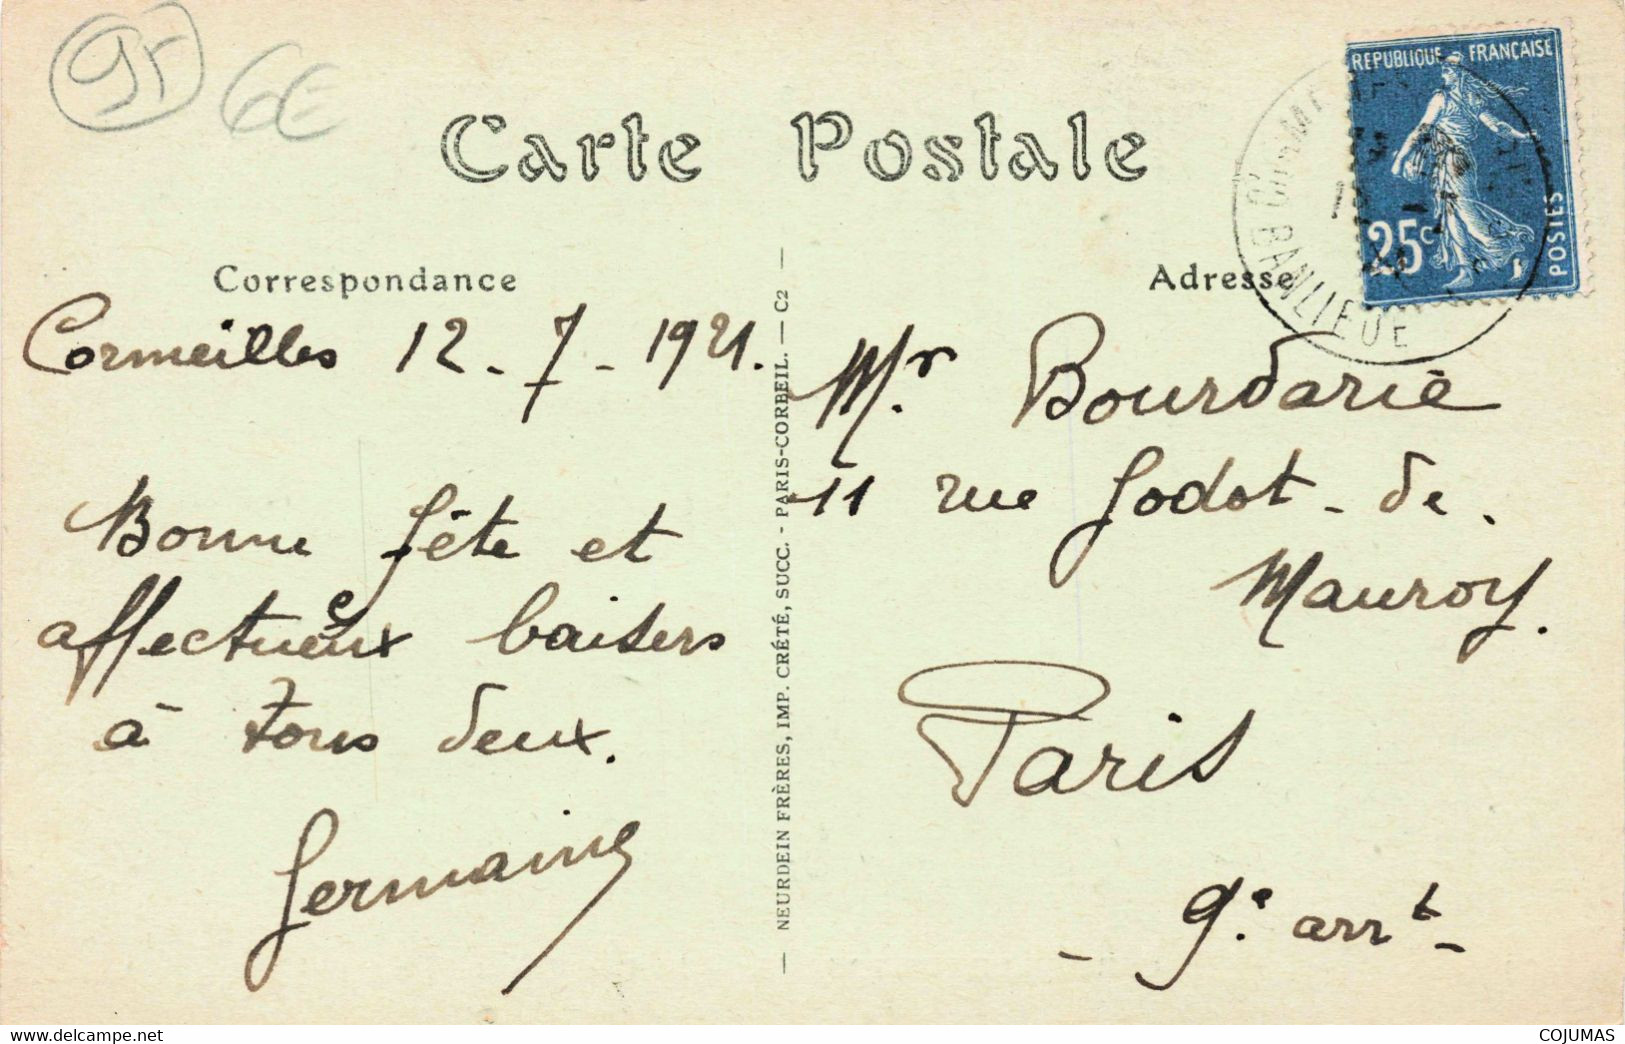 95 6€
Carte Postale
REPUBLIQUE FRANÇAISE
25c
POSTES
BANLIEUE
Correspondance
Adresse
Cormeilles 12-7-1921.
Bonne fête et
affectueux baisers
à tous deux.
Germaine
— NEURDEIN FRÈRES, IMP. CRÉTÉ, SUCC. - PARIS-CORBEIL. — C2 —
Mr. Bourdarie
11 rue Godot-de.
Mauroy.
Paris
- 9e. arrt -
delcampe.net
COJUMAS